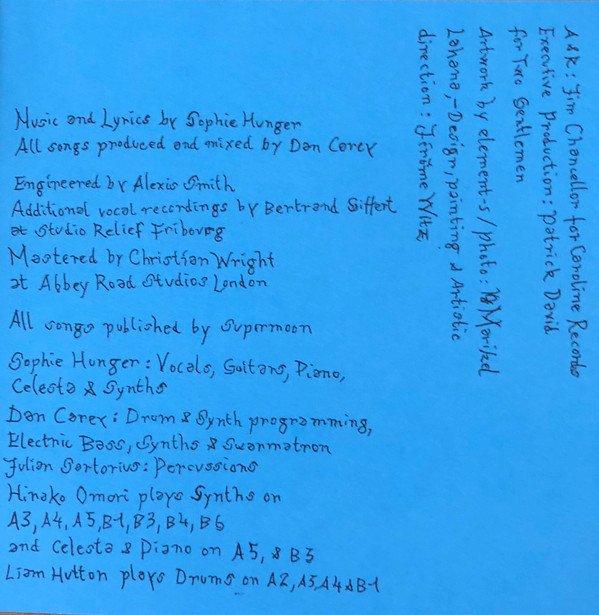 Music and Lyrics by Sophie Hunger
All songs produced and mixed by Dan Carey
Engineered by Alexis Smith
Additional vocal recordings by Bertrand Siffert
at Studio Relief Fribourg
Mastered by Christian Wright
at Abbey Road Studios London
All songs published by Supermoon
Sophie Hunger: Vocals, Guitars, Piano,
Celesta & Synths
Dan Carey: Drum & Synth programming,
Electric Bass, Synths & Swarmatron
Julian Sartorius: Percussions
Hinako Omori plays Synths on
A3, A4, A5, B1, B3, B4, B6
and Celesta & Piano on A5, & B3
Liam Hutton plays Drums on A2, A3, A4 & B1
A&R: Jim Chancellor for Caroline Records
Executive Production: Patrick David
for Two Gentlemen
Artwork by element-s / photo: Marikel
Lahana,-Design, painting & Artistic
direction: Jérôme Witz